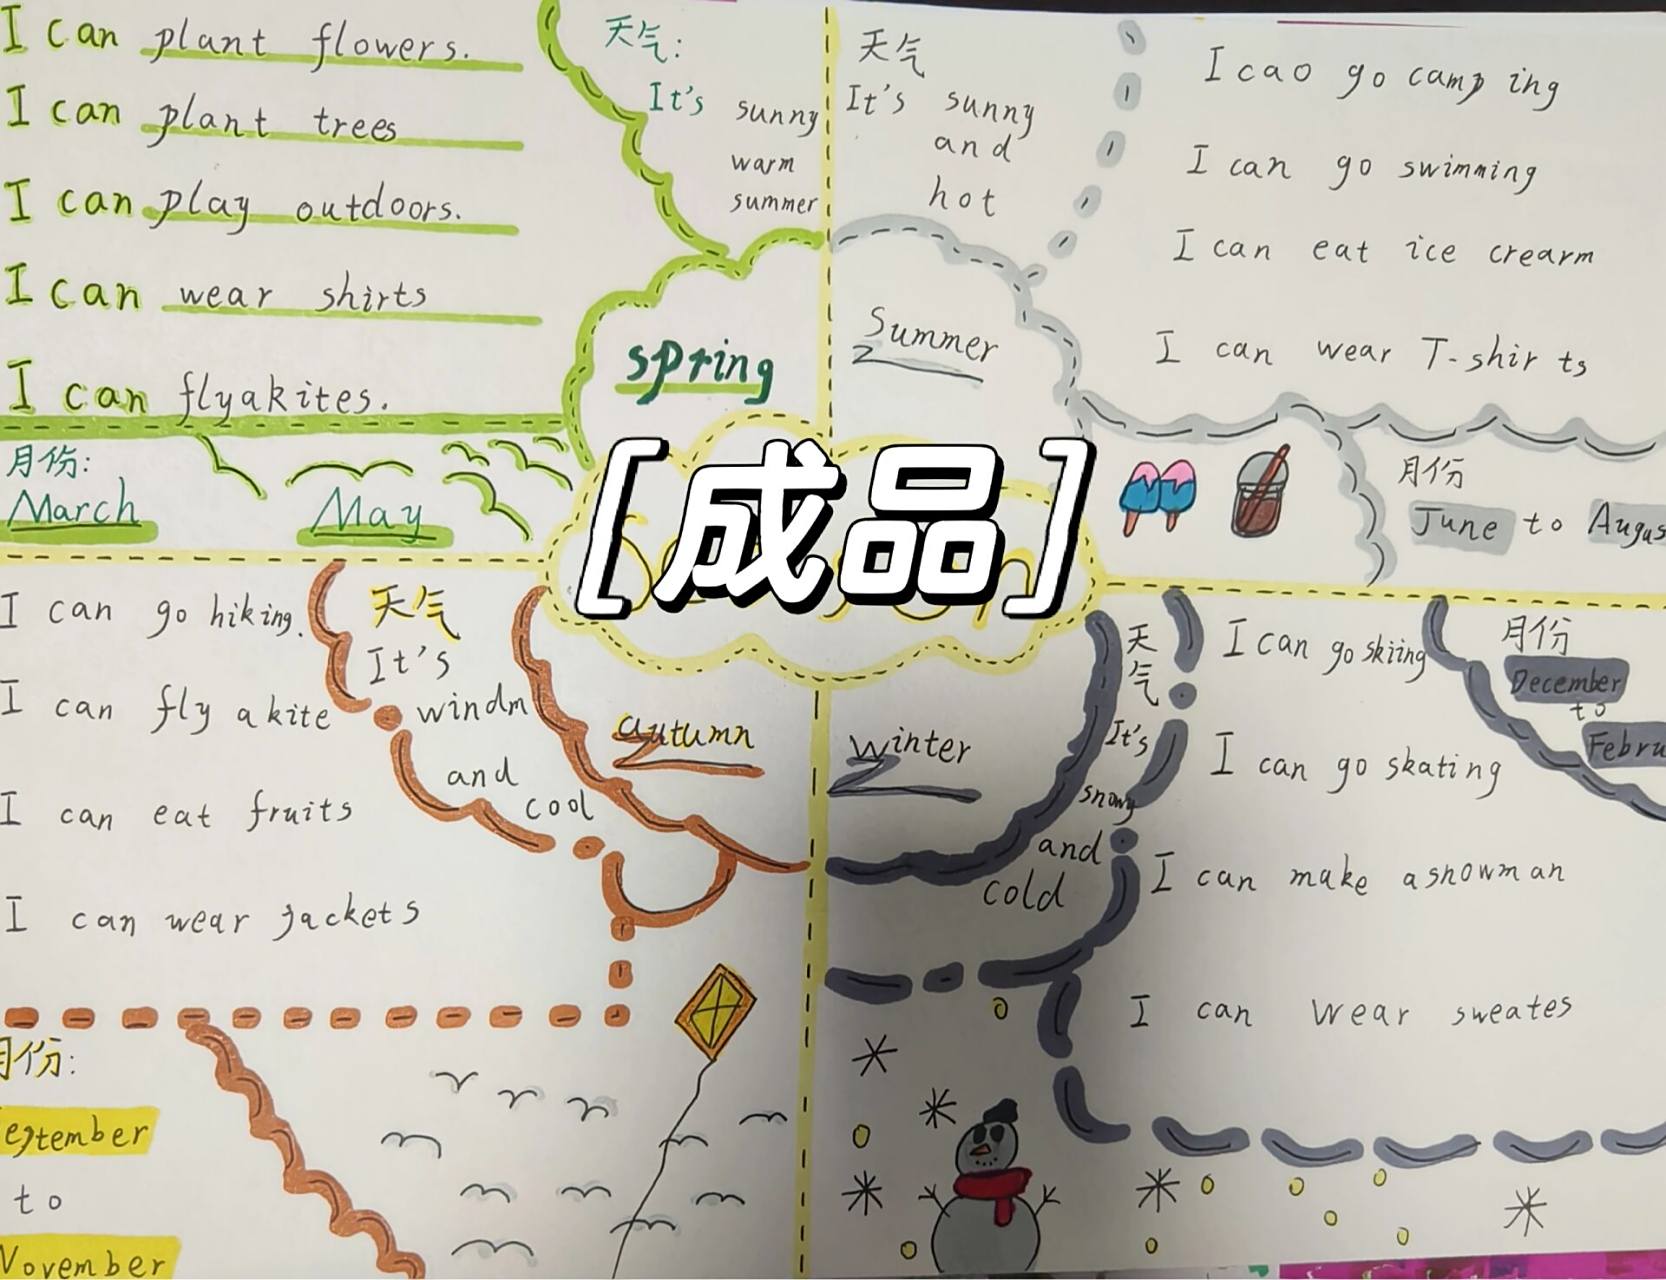 I can plant flowers.
I can plant trees
I can play outdoors.
I can wear shirts
I can flyakites.
天气:
It's sunny
warm
summer
spring
月份:
March
May
天气
It's sunny
and
hot
Summer
I cao go camp ing
I can go swimming
I can eat ice crearm
I can wear T-shir ts
月份
June to Augus
[成品]
I can go hiking.
I can fly akite
I can eat fruits
I can wear jackets
天气
It's
windm
and
cool
autumn
月份:
to
November
winter
天气
It's
snowy
and
cold
I can go skiing
I can go skating
I can make asnowman
I can wear sweates
月份
December
to
Febru